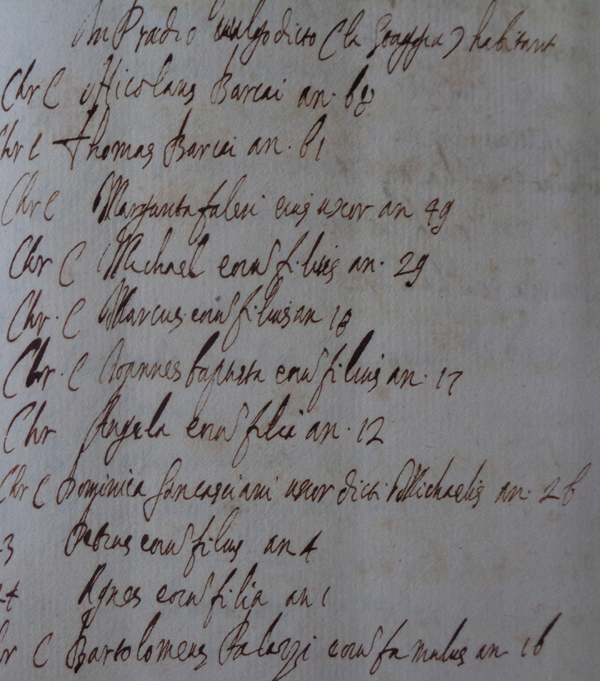 In Predio vulgo dicto (la Scappa) habitant
Chr C Nicolaus Barcai an. 68
Chr C Thomas Barcai an. 61
Chr C Margarita eius uxor an 49
Chr C Michael eorum filius an. 29
Chr. C Marcus eorum filius an 18
Chr. C Joannes baptista eorum filius an. 17
Chr Angela eorum filia an. 12
Chr C Dominica uxor dicti Michaelis an. 26
3 Petrus eorum filius an 4
4 Agnes eorum filia an 1
r C Bartolomeus Palazzi eorum famulus an 16